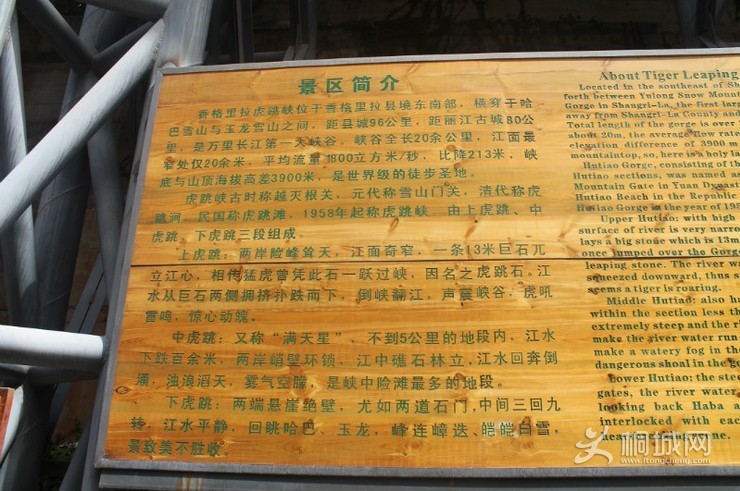 景区简介
香格里拉虎跳峡位于香格里拉县境东南部，横穿于哈
巴雪山与玉龙雪山之间，距县城96公里，距丽江古城80公
里，是万里长江第一大峡谷。峡谷全长20余公里，江面最
窄处仅20余米，平均流量1800立方米/秒，比降213米，峡
底与山顶海拔高差3900米，是世界级的徒步圣地。
虎跳峡古时称越灭根关，元代称雪山门关，清代称虎
跳涧，民国称虎跳滩，1958年起称虎跳峡，由上虎跳、中
虎跳、下虎跳三段组成。
上虎跳：两岸险峰耸天，江面奇窄，一条13米巨石兀
立江心，相传猛虎曾凭此石一跃过峡，因名之虎跳石。江
水从巨石两侧拥挤扑跌而下，倒峡翻江，声震峡谷，虎吼
雷鸣，惊心动魄。
中虎跳：又称“满天星”、不到5公里的地段内，江水
下跌百余米，两岸峭壁环锁，江中礁石林立，江水回奔倒
涌，浊浪滔天，雾气空朦，是峡中险滩最多的地段。
下虎跳：两端悬崖绝壁，尤如两道石门，中间三回九
转，江水平静，回眺哈巴、玉龙，峰连嶂迭、皑皑白雪，
景致美不胜收。
About Tiger Leaping
Located in the southeast of Sh
forth between Yulong Snow Moun
Gorge in Shangri-La, the first larg
away from Shangri-La County and
Total length of the gorge is over
about 20m, the average flow rate
elevation difference of 3900 m
mountaintop, so, here is a holy la
Hutiao Gorge, consisting of the
Hutiao sections, was named as
Mountain Gate in Yuan Dynast
Hutiao Beach in the Republic
Hutiao Gorge in the year of 195
Upper Hutiao: with high
surface of river is very narro
lays a big stone which is 13m
once jumped over the Gorge
leaping stone. The river w
squeezed downward, thus s
seems a tiger is roaring.
Middle Hutiao: also ha
within the section less the
extremely steep and the r
make the river water run
make a watery fog in the
dangerous shoal in the go
Lower Hutiao: the stee
gates, the river water
looking back Haba a
interlocked with eac
桐城网
www.itongcheng.com